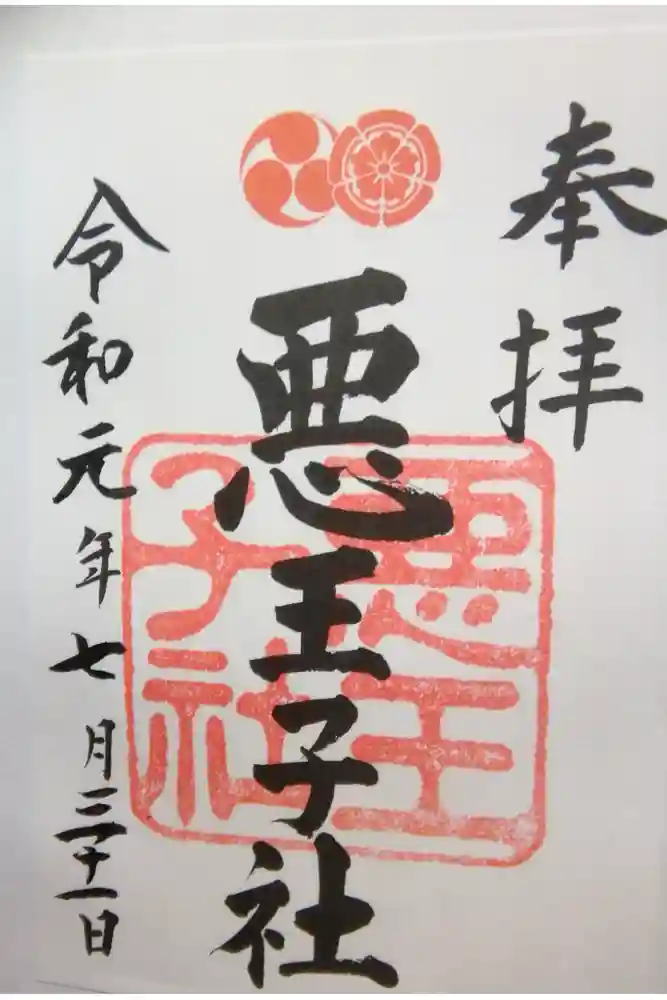 奉拝
悪王子社
悪王子社
令和元年七月三十一日